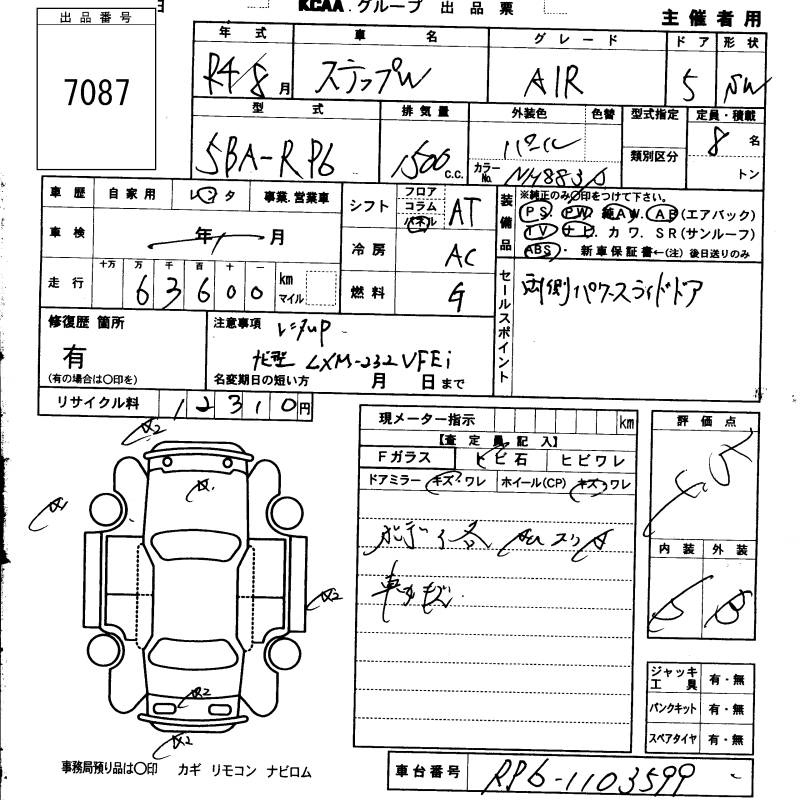 KCAA.グループ 出品票
主催者用
出品番号
7087
年式 車名 グレード ドア 形状
R4/8月 ステップW AIR 5 SW
型式 排気量 外装色 色替 型式指定 定員・積載
5BA-RP6 1500 c.c. パール 類別区分 8名
カラーNo. NH883P トン
車歴 自家用 レンタ 事業.営業車
車検 年 月
走行 十万 万 千 百 十 一
63600 km マイル
シフト フロア コラム パネル AT
冷房 AC
燃料 G
装備品 ※純正のみ○印をつけて下さい。
PS. PW. 純AW. AB(エアバック)
TV ナビ. カワ. SR(サンルーフ)
ABS. 新車保証書←(注) 後日送りのみ
セールスポイント 両側パワースライドドア
修復歴 箇所
有
(有の場合は○印を)
注意事項 レンタup
ナビ型 LXM-232VFEi
名変期日の短い方 月 日まで
リサイクル料 12310円
現メーター指示 km
【査定員記入】
Fガラス ヒビ石 ヒビワレ
ドアミラー キズ・ワレ ホイール(CP) キズ・ワレ
評価点
内装 外装
5 B
A2
A1
A1
A2
A2
A2
ジャッキ工具 有・無
パンクキット 有・無
スペアタイヤ 有・無
事務局預り品は○印 カギ リモコン ナビロム
車台番号 RP6-1103599